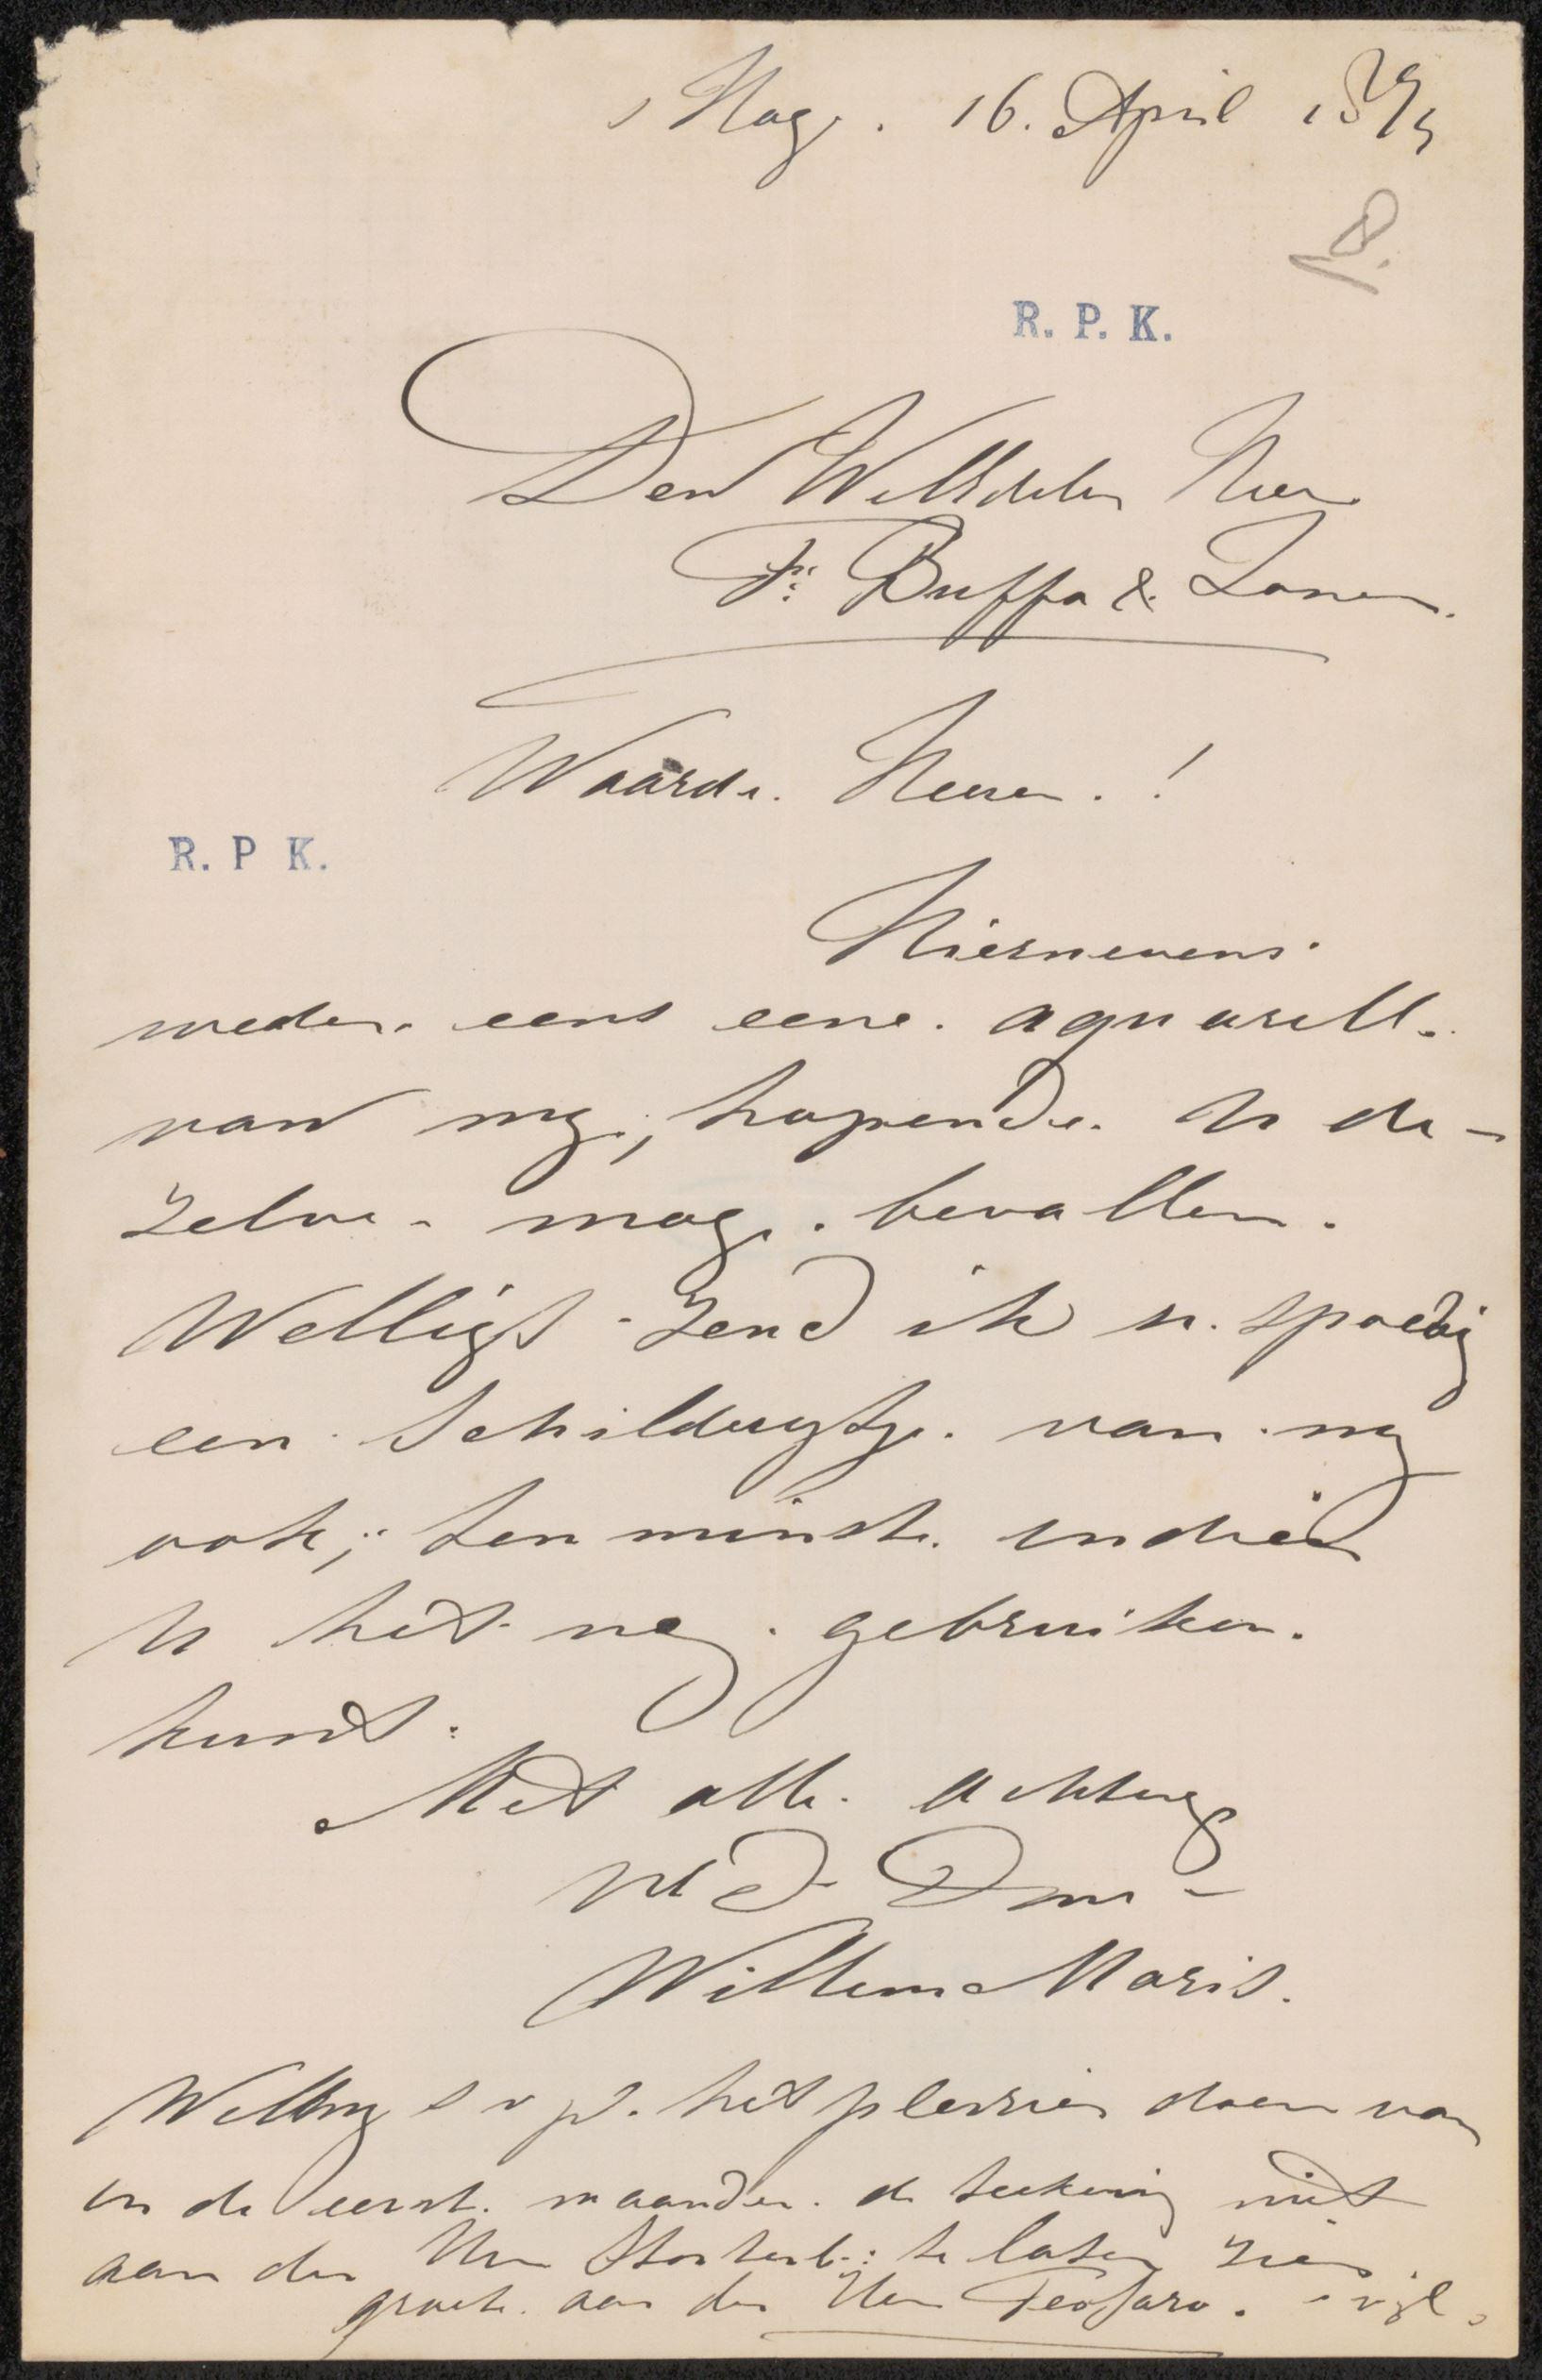 s Hage. 16. April 1875
8.
R. P. K.
Den WelEdelen Heer
F: Buffa & Zonen.
Waarde. Heeren. !
R. P K.
Hiernevens
weder. eens eene. aquarell.
van my, hopende. U de-
zelve - mag. bevallen.
Welligt zend ik u. spoedig
een Schilderytje. van my
ook; ten minste. indien
U het nog. gebruiken.
kundt.
Met alle. achting
UEd Dnr -
Willem Maris.
Wilt my s v pl. het plessier doen van
in de eerste. maanden. de teekening niet
aan den Heer te laten zien
groete. aan den Heer